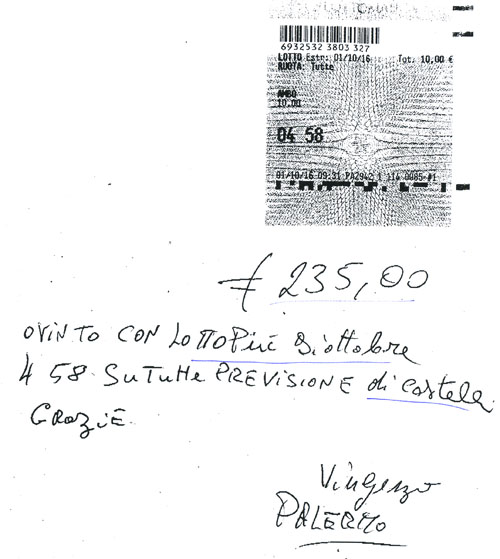 6932532 3803 327
LOTTO Estr: 01/10/16 Tot. 10,00 €
RUOTA: Tutte
AMBO
10,00
04 58
01/10/16 09:31 PA2942 1 114 0085
€ 235,00
OVINTO CON LOTTOPIÙ Diottobre
4 58 SUTUTTE PREVISIONE di Castela
GRAZIE
Vingenzo
PALERMO